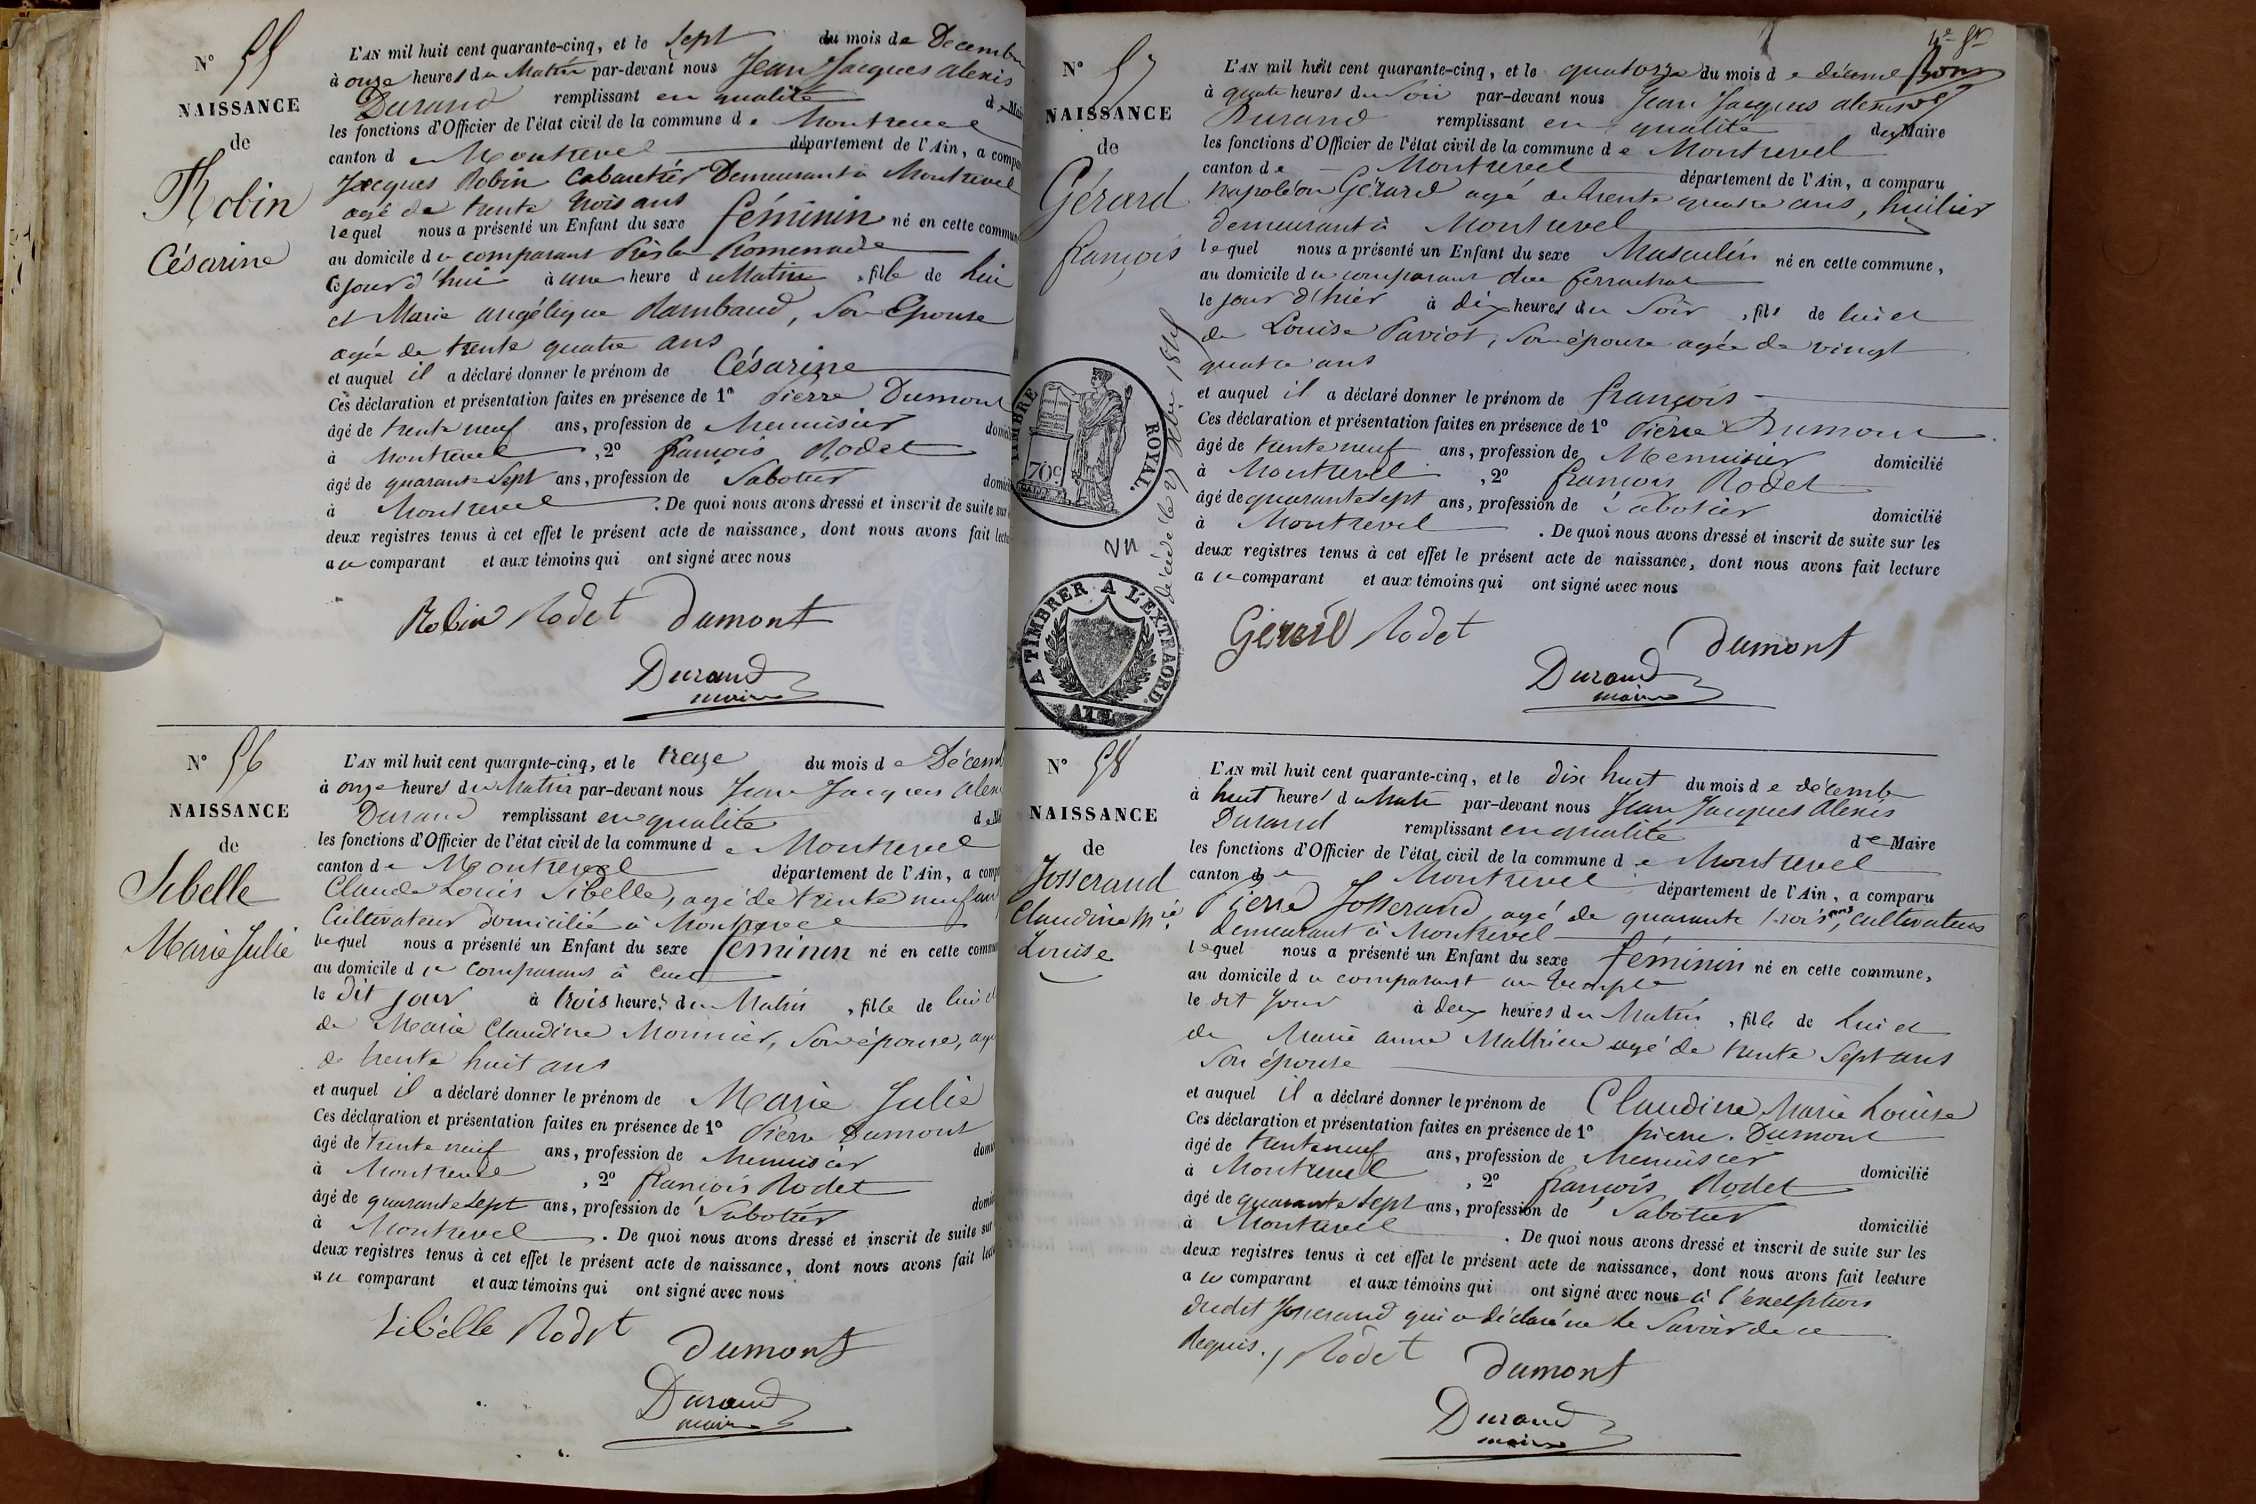 N° 55
NAISSANCE
de
Robin
Césarine
L'AN mil huit cent quarante-cinq, et le sept du mois de Décembre
à onze heures du Matin par-devant nous Jean Jacques alexis
Durand remplissant en qualité de Mai
les fonctions d'Officier de l'état civil de la commune de Montrevel
canton de Montrevel département de l'Ain, a compa
Jacques Robin Cabaretier Demeurant à Montrevel
agé de trente trois ans
lequel nous a présenté un Enfant du sexe féminin né en cette commun
au domicile du comparant Près la Promenade
Ce jour d'hui à une heure du Matin, fille de lui
et Marie angélique Rambaud, Son Epouse
agée de trente quatre ans
et auquel il a déclaré donner le prénom de Césarine
Ces déclaration et présentation faites en présence de 1° Pierre Dumont
âgé de trente neuf ans, profession de Menuisier domici
à Montrevel, 2° françois Rodet
âgé de quarante Sept ans, profession de Sabotier domici
à Montrevel. De quoi nous avons dressé et inscrit de suite sur
deux registres tenus à cet effet le présent acte de naissance, dont nous avons fait lectu
au comparant et aux témoins qui ont signé avec nous
Robin Rodet Dumont
Durand
maire
N° 56
NAISSANCE
de
Sibelle
Marie Julie
L'AN mil huit cent quarante-cinq, et le treize du mois de Décemb
à onze heures du Matin par-devant nous Jean Jacques alexi
Durand remplissant en qualité de Ma
les fonctions d'Officier de l'état civil de la commune de Montrevel
canton de Montrevel département de l'Ain, a comp
Claude Louis Sibelle, agé de trente neuf ans
Cultivateur domicilié à Montrevel
lequel nous a présenté un Enfant du sexe féminin né en cette commu
au domicile du comparant à
le dit jour à trois heures du Matin, fille de lui et
de Marie Claudine Monnier, Son épouse, agé
de trente huit ans
et auquel il a déclaré donner le prénom de Marie Julie
Ces déclaration et présentation faites en présence de 1° Pierre Dumont
âgé de trente neuf ans, profession de Menuisier domic
à Montrevel, 2° françois Rodet
âgé de quarante Sept ans, profession de Sabotier domic
à Montrevel. De quoi nous avons dressé et inscrit de suite sur
deux registres tenus à cet effet le présent acte de naissance, dont nous avons fait lect
au comparant et aux témoins qui ont signé avec nous
Sibelle Rodet
Dumont
Durand
maire
N° 57
NAISSANCE
de
Gérard
françois
TIMBRE ROYAL.
70c
A TIMBRER A L'EXTRAORD.
AIN
L'AN mil huit cent quarante-cinq, et le quatorze du mois de décembre
à quatre heures du Soir par-devant nous Jean Jacques alexis
Durand remplissant en qualité de Maire
les fonctions d'Officier de l'état civil de la commune de Montrevel
canton de Montrevel département de l'Ain, a comparu
Napoléon Gérard agé de trente quatre ans, huilier
demeurant à Montrevel
lequel nous a présenté un Enfant du sexe Masculin né en cette commune,
au domicile du comparant
le jour d'hier à dix heures du Soir, fils de lui et
de Louise Paviot, Son épouse agée de vingt
quatre ans
et auquel il a déclaré donner le prénom de françois
Ces déclaration et présentation faites en présence de 1° Pierre Dumont
âgé de trente neuf ans, profession de Menuisier domicilié
à Montrevel, 2° françois Rodet
âgé de quarante Sept ans, profession de Sabotier domicilié
à Montrevel. De quoi nous avons dressé et inscrit de suite sur les
deux registres tenus à cet effet le présent acte de naissance, dont nous avons fait lecture
au comparant et aux témoins qui ont signé avec nous
Gérard Rodet
Dumont
Durand
maire
N° 58
NAISSANCE
de
Josserand
Claudine Mie
Louise
L'AN mil huit cent quarante-cinq, et le dix huit du mois de décembre
à huit heures du Matin par-devant nous Jean Jacques Alexis
Durand remplissant en qualité de Maire
les fonctions d'Officier de l'état civil de la commune de Montrevel
canton de Montrevel département de l'Ain, a comparu
Pierre Josserand, agé de quarante trois ans, cultivateur
demeurant à Montrevel
lequel nous a présenté un Enfant du sexe féminin né en cette commune,
au domicile du comparant au temple
le dit jour à deux heures du Matin, fille de lui et
de Marie anne Mathieu agé de trente Sept ans
Son épouse
et auquel il a déclaré donner le prénom de Claudine Marie Louise
Ces déclaration et présentation faites en présence de 1° Pierre Dumont
âgé de trente neuf ans, profession de Menuisier domicilié
à Montrevel, 2° françois Rodet
âgé de quarante Sept ans, profession de Sabotier domicilié
à Montrevel. De quoi nous avons dressé et inscrit de suite sur les
deux registres tenus à cet effet le présent acte de naissance, dont nous avons fait lecture
au comparant et aux témoins qui ont signé avec nous à l'exception
dudit Josserand qui a déclaré ne le Savoir de ce
Requis. Rodet Dumont
Durand
maire